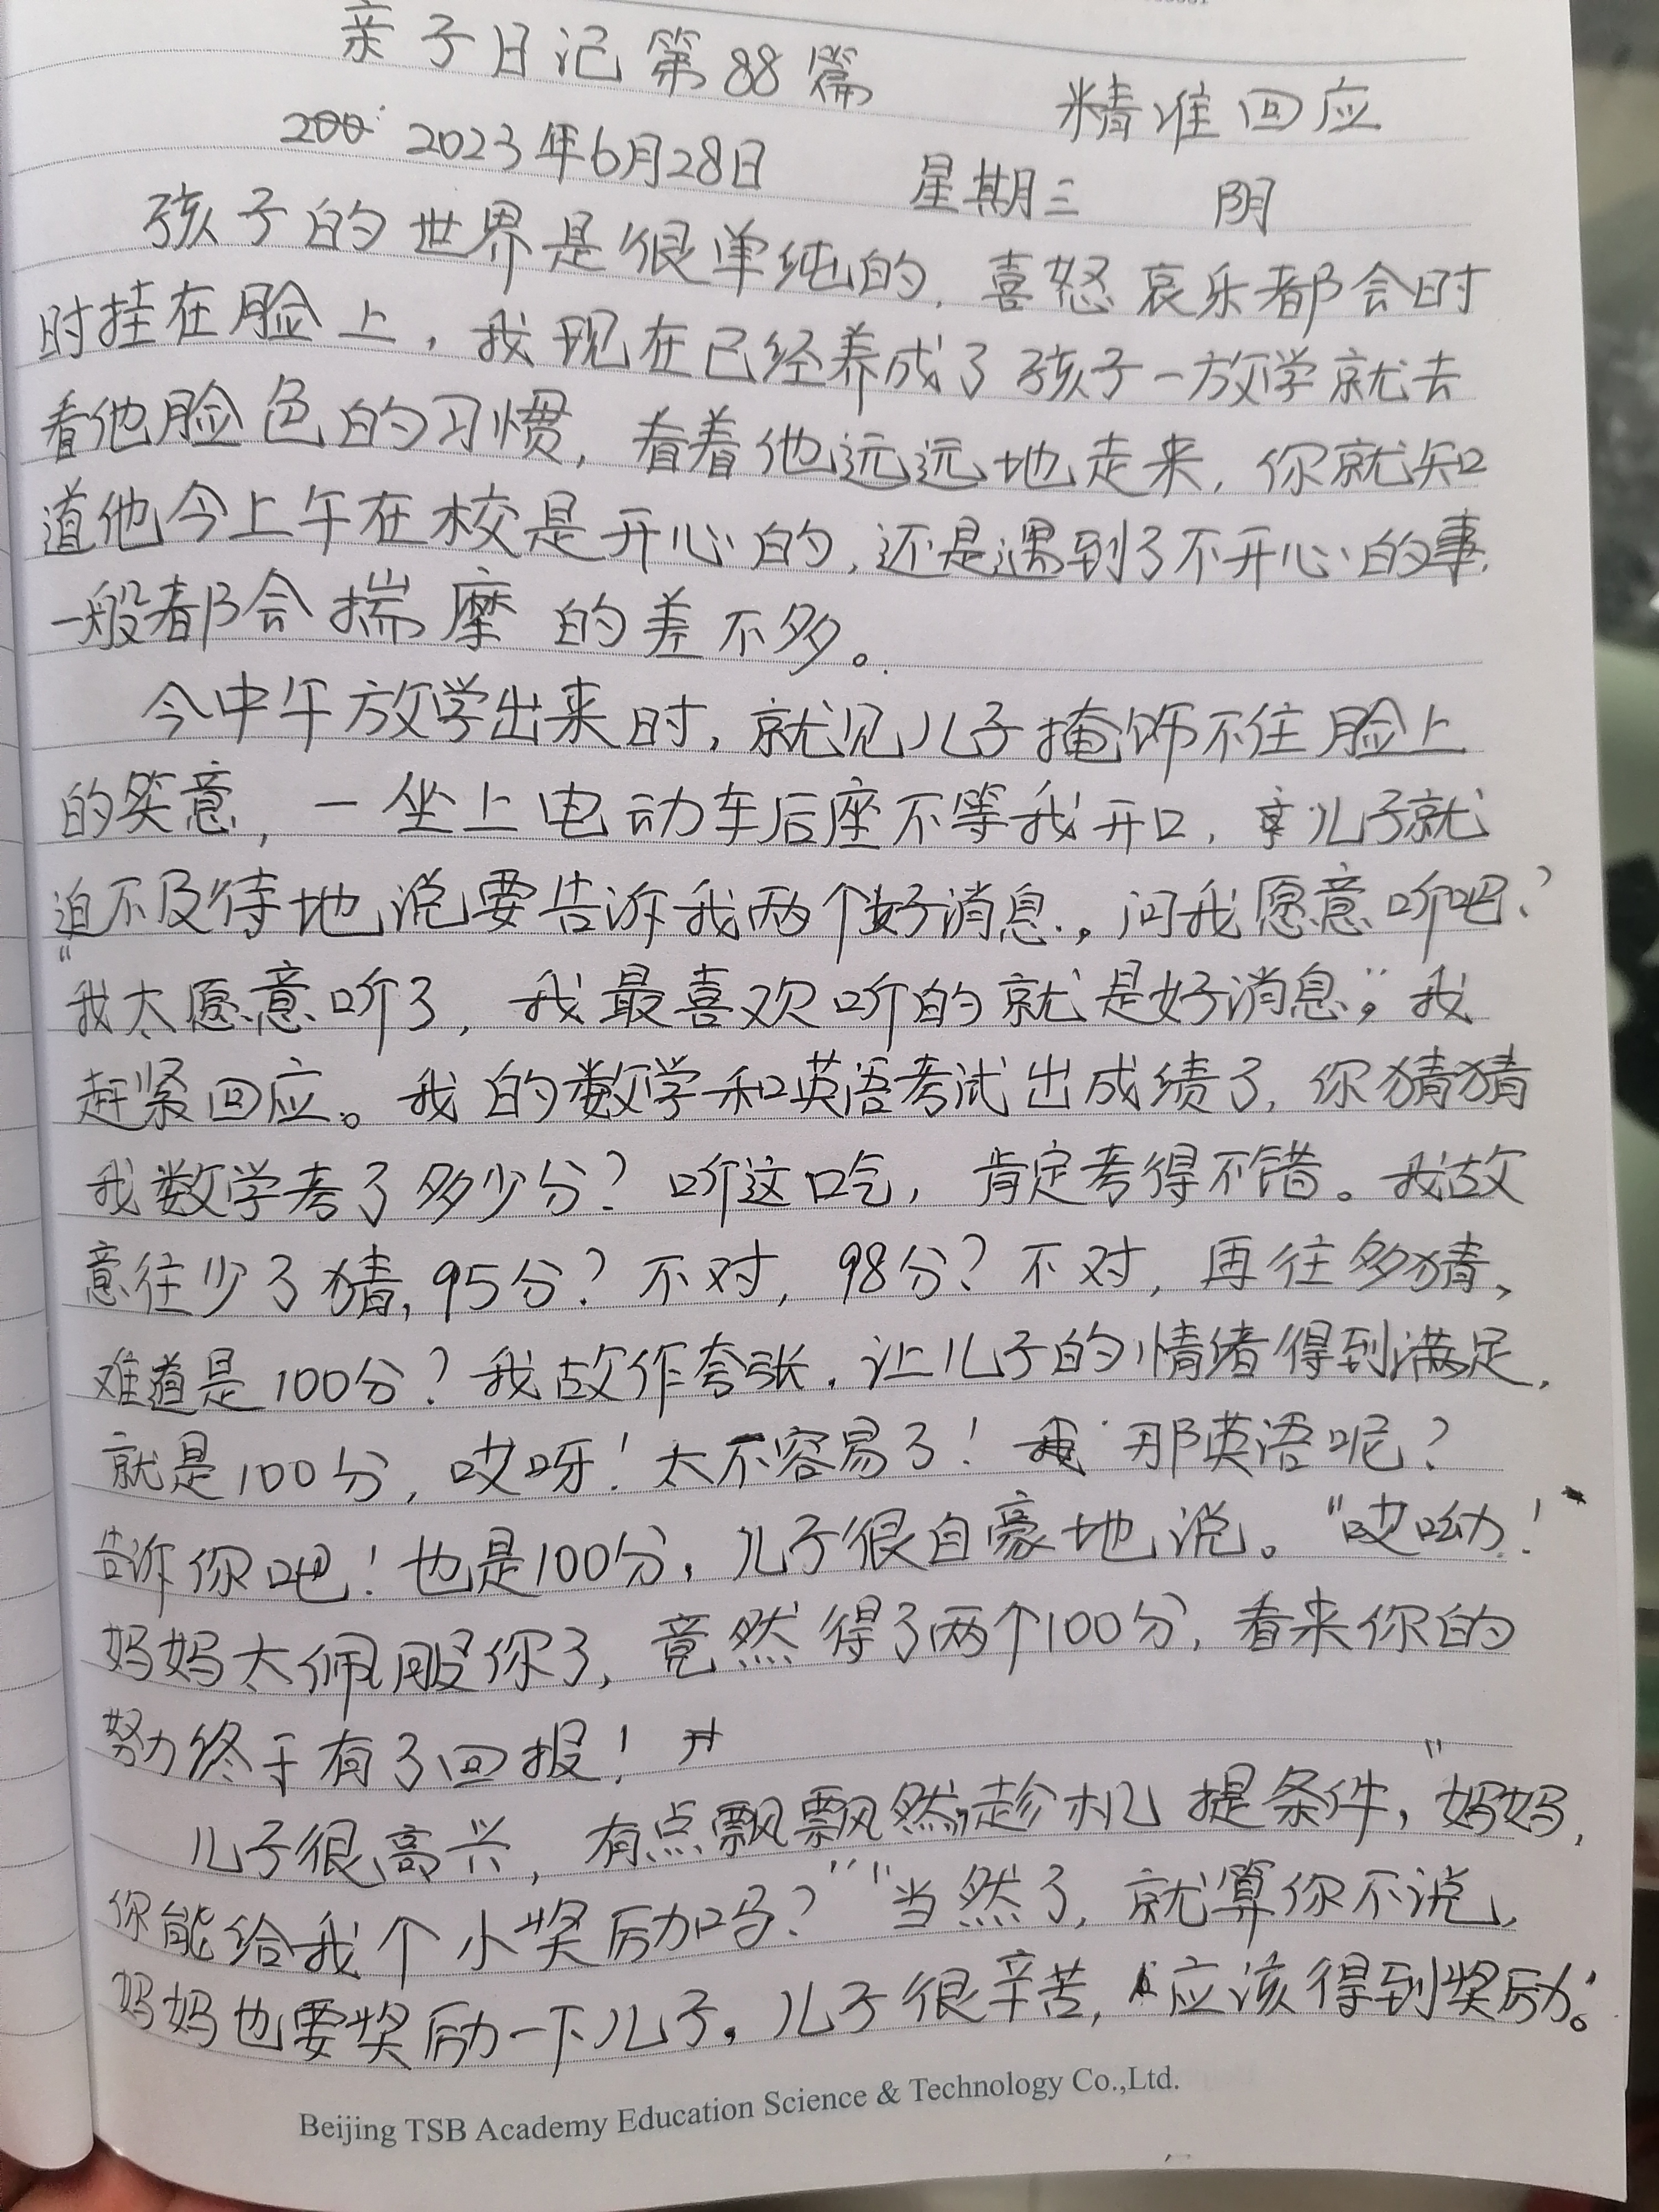 亲子日记第88篇 精准回应
2023年6月28日 星期三 阴
孩子的世界是很单纯的,喜怒哀乐都会时
时挂在脸上,我现在已经养成了孩子一放学就去
看他脸色的习惯,看着他远远地走来,你就知
道他今上午在校是开心的,还是遇到了不开心的事,
一般都会揣摩的差不多。
今中午放学出来时,就见儿子掩饰不住脸上
的笑意,一坐上电动车后座不等我开口,儿子就
迫不及待地说要告诉我两个好消息,问我愿意听吧?
“我太愿意听了,我最喜欢听的就是好消息”,我
赶紧回应。我的数学和英语考试出成绩了,你猜猜
我数学考了多少分?听这口气,肯定考得不错。我故
意往少了猜,95分?不对,98分?不对,再往多猜,
难道是100分?我故作夸张,让儿子的情绪得到满足,
就是100分,哎呀!太不容易了!那英语呢?
告诉你吧!也是100分,儿子很自豪地说。“哎呦!
妈妈太佩服你了,竟然得了两个100分,看来你的
努力终于有了回报!
儿子很高兴,有点飘飘然,趁机提条件,“妈妈,
你能给我个小奖励吗?”“当然了,就算你不说,
妈妈也要奖励一下儿子,儿子很辛苦,应该得到奖励。”
Beijing TSB Academy Education Science & Technology Co.,Ltd.